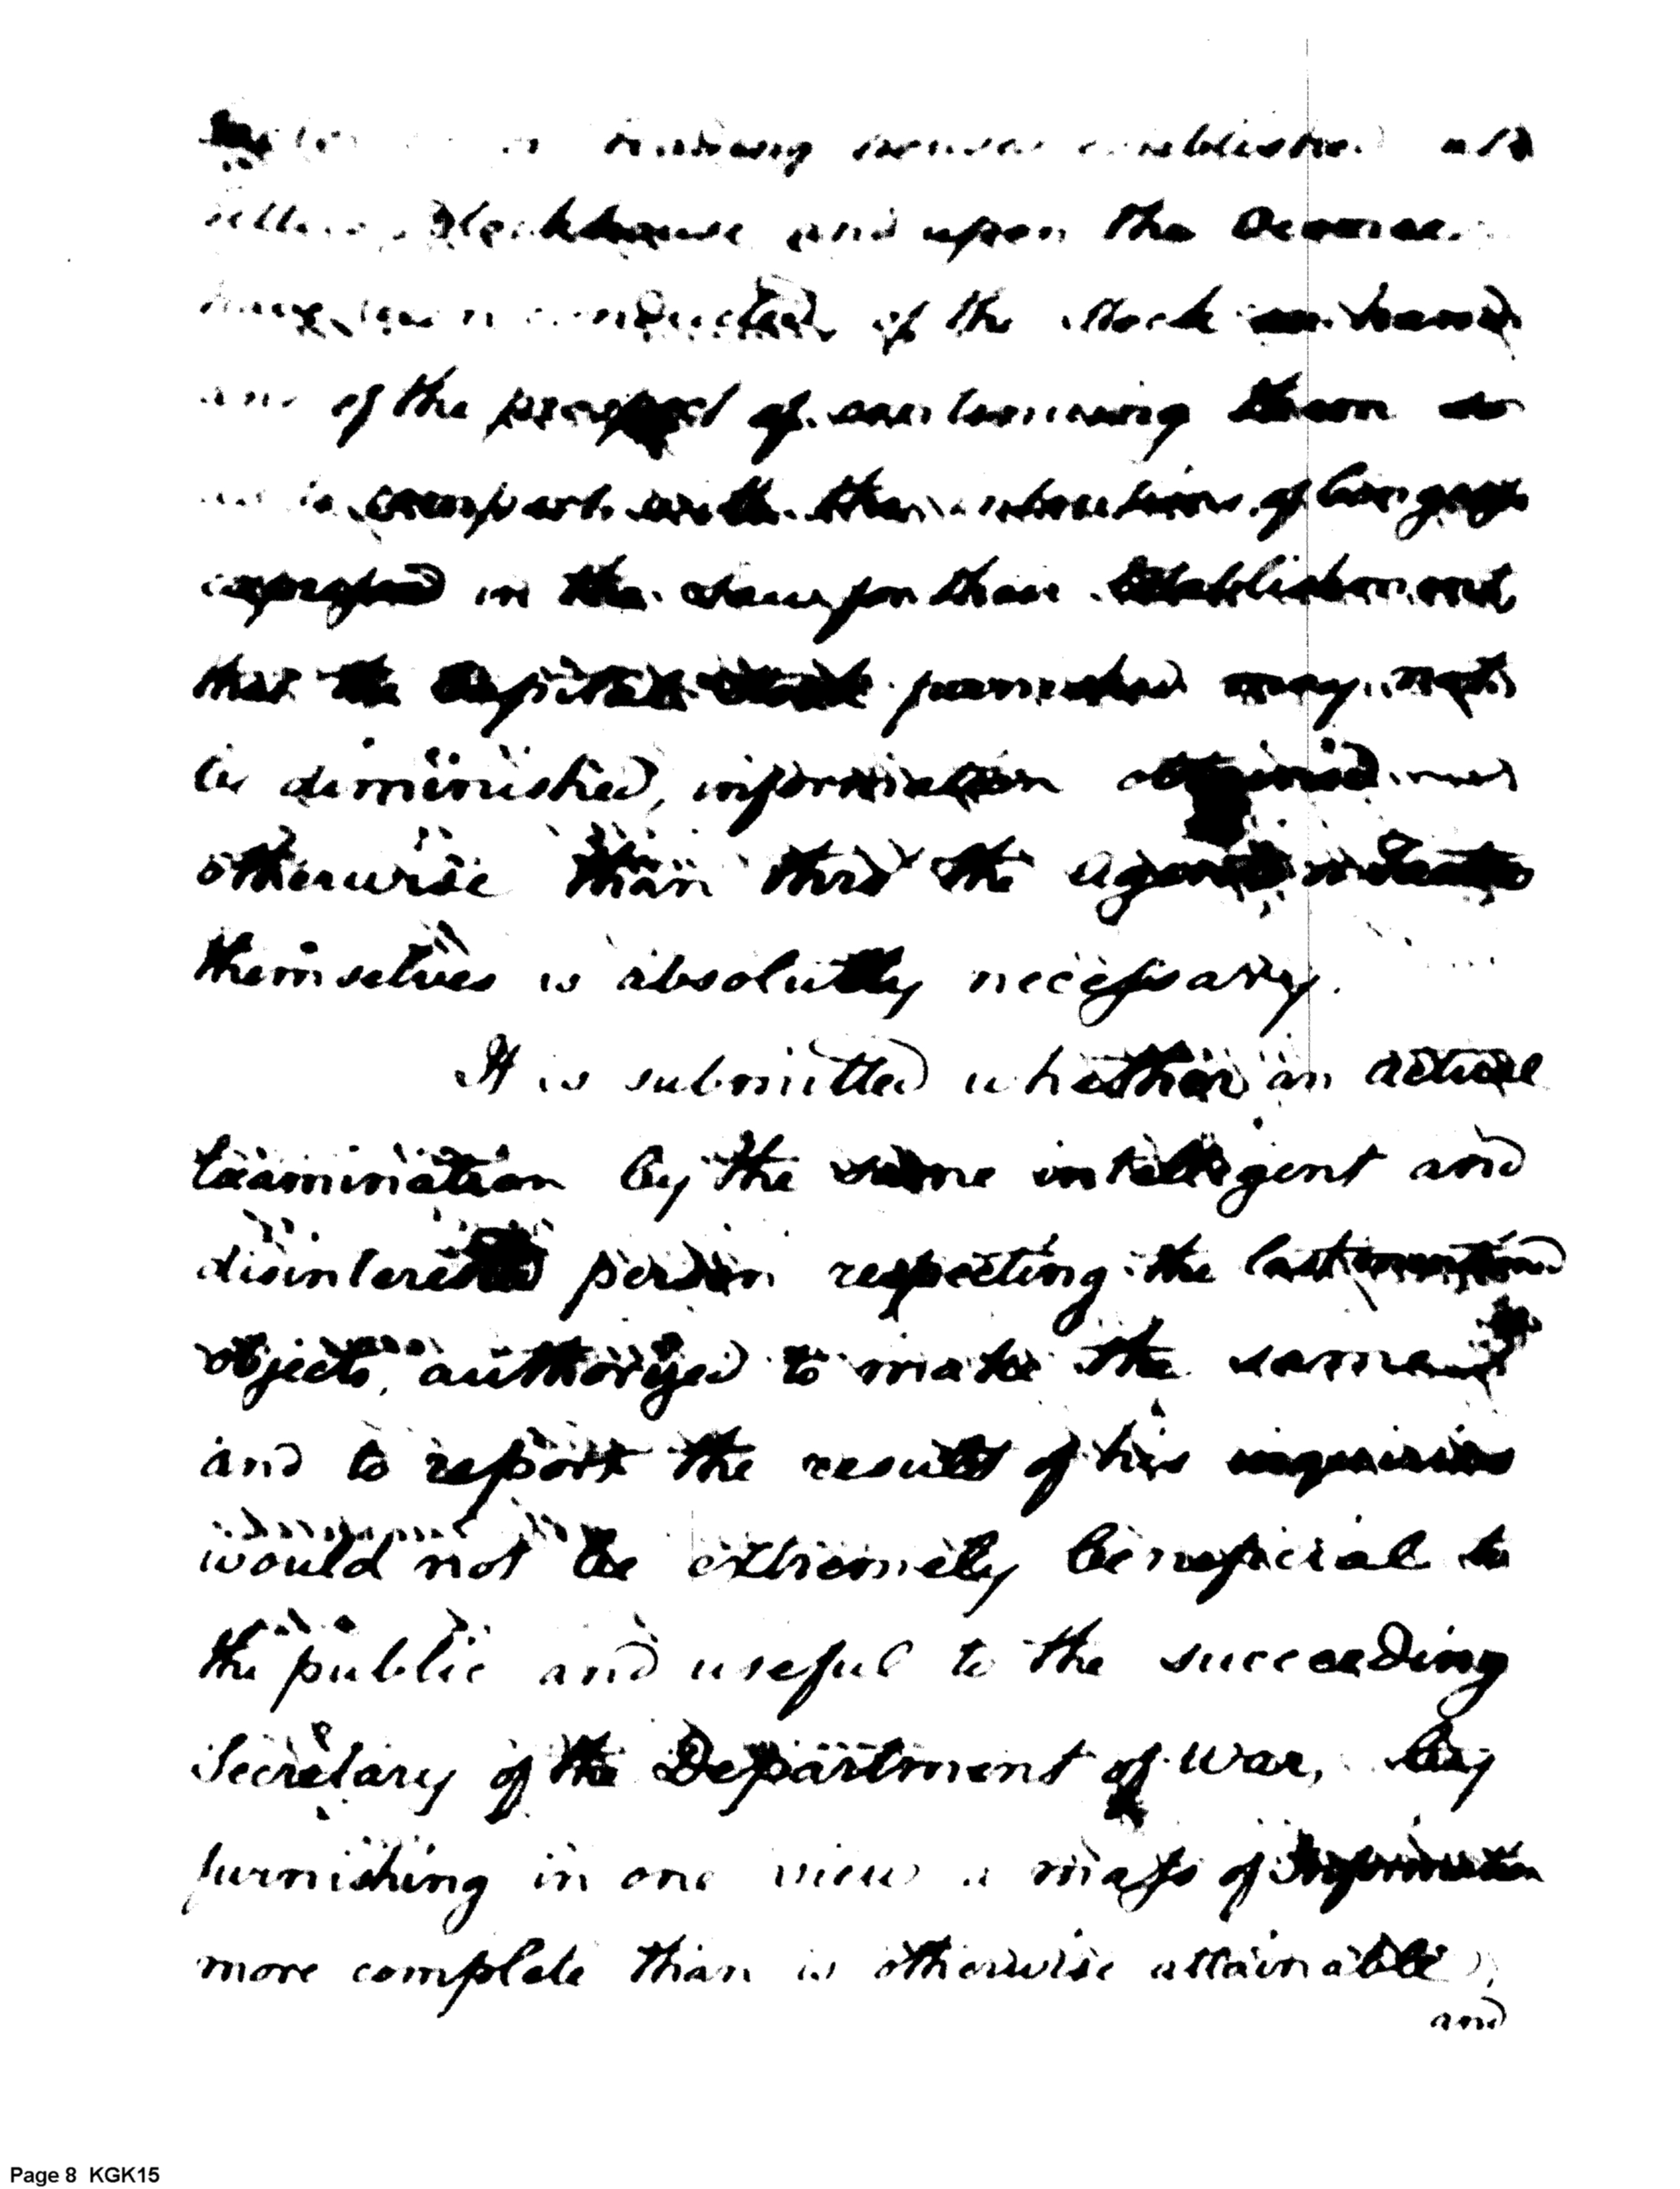 trading houses established at
and upon the
conducted of the stock on hand
and of the prospect of continuing them so
as to comport with the intentions of Congress
expressed in the their Establishment
that the Capital Stock furnished may not
be diminished, information obtained
otherwise than thro' the agents
themselves is absolutely necessary.
It is submitted whether an actual
Examination by the same intelligent and
disinterested person respecting the last mentioned
objects, authorized to make the same
and to report the result of his inquiries
would not be extremely beneficial to
the public and useful to the succeeding
Secretary of the Department of War, by
furnishing in one view a mass of Information
more complete than is otherwise attainable,
and
Page 8 KGK15